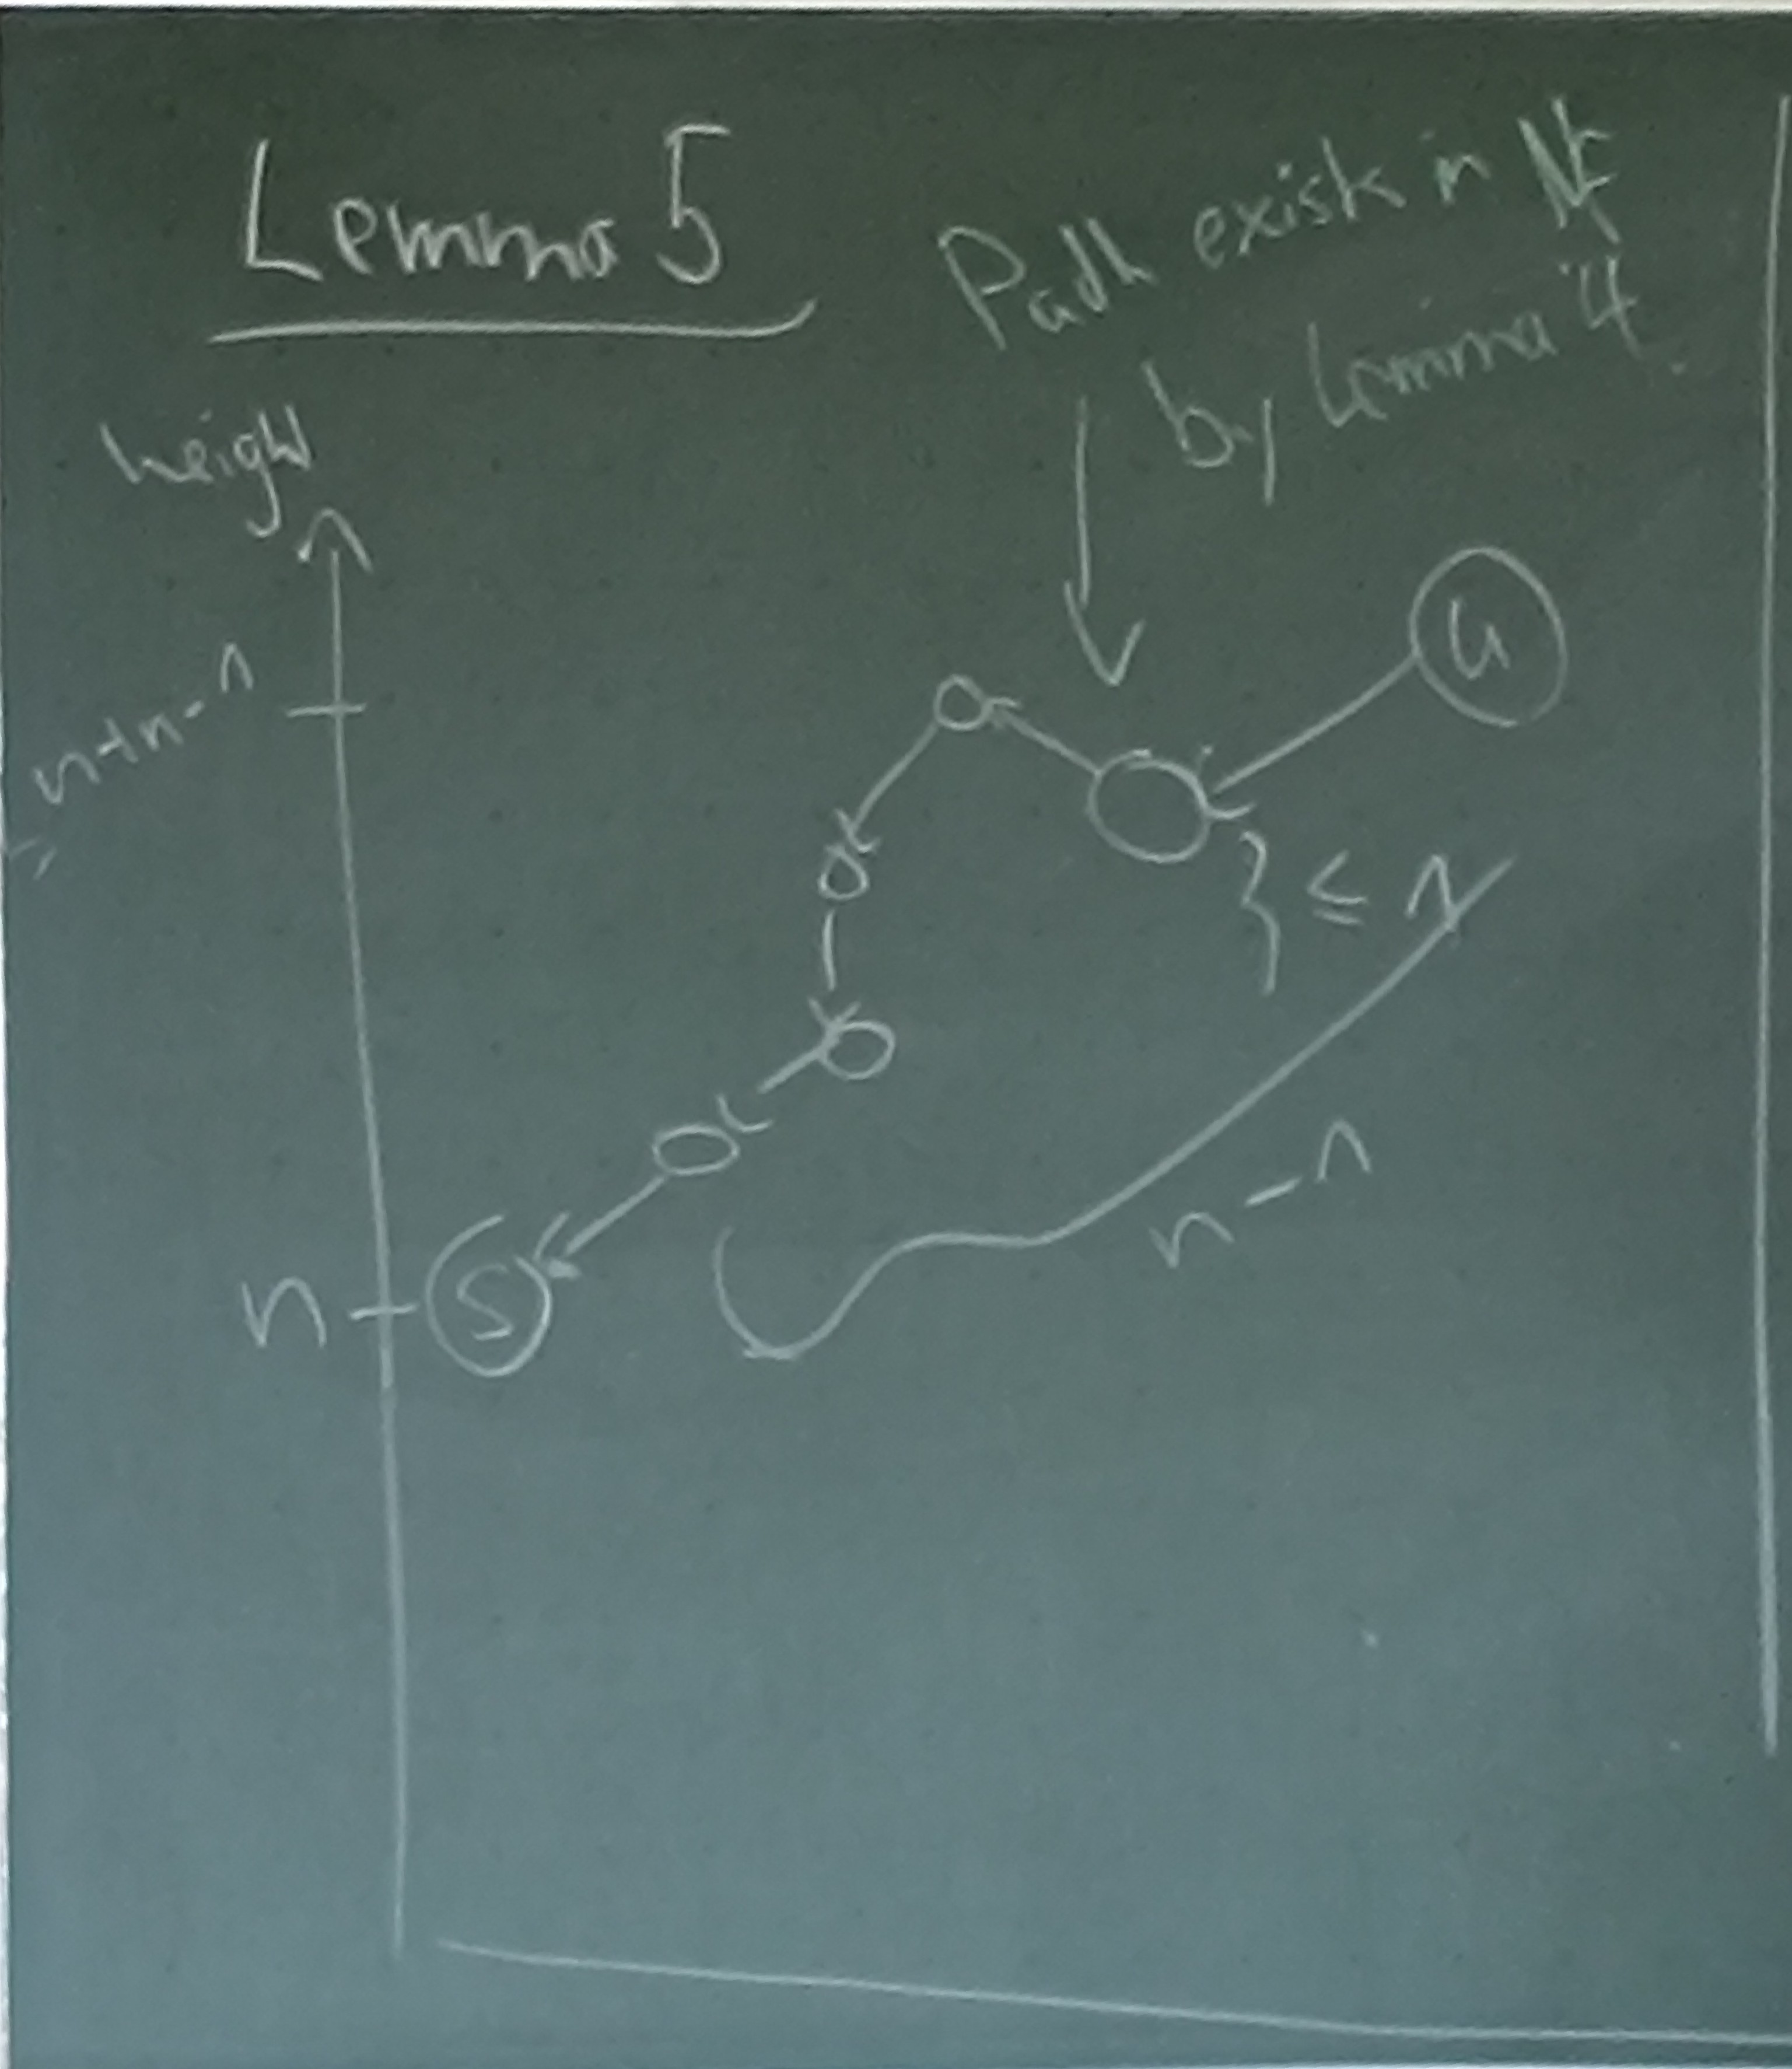 Lemma 5
Path exists in N_f
by Lemma 4.
height
n+n-1
u
≤ 1
n-1
n
s